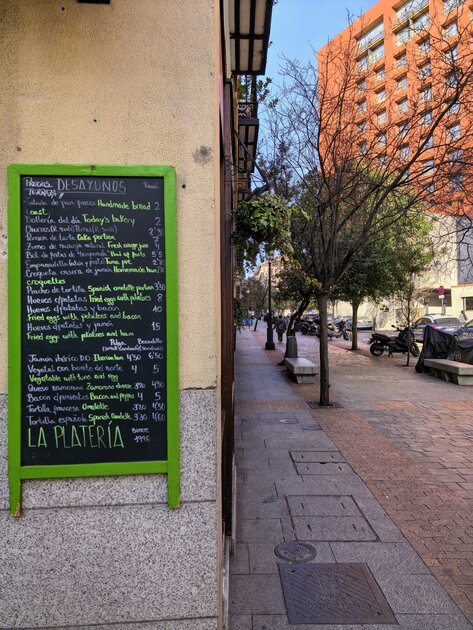 PRECIOS TERRAZA DESAYUNOS
Tostada de pan fresco Handmade bread toast. 2
Bollería del día Today's bakery 2
Porción de tarta Cake portion 4
Zumo de naranja natural Fresh orange juice
Bol de frutas de temporada Bowl of fruits 5'5
Croqueta casera de jamón Homemade ham croquettes
Pincho de tortilla Spanish omelette 3'50
Huevos c/patatas Fried eggs with potatoes 8
Huevos c/patatas y bacon 10
Fried eggs with potatoes and bacon
Huevos c/patatas y jamón 15
Fried eggs with potatoes and ham
Pulga Bocadillo
(small sandwich) (Sandwich)
Jamón ibérico DO Iberian ham 4'30 6'50
Vegetal con bonito del norte 4 5
Vegetable with tuna and egg
Queso zamorano Zamorano cheese 3'70 4'50
Bacon c/patatas Bacon and peppers 4 5
Tortilla francesa Omelette 3'70 4'50
Tortilla española Spanish Omelette 3'30 4'60
LA PLATERÍA SINCE 1996